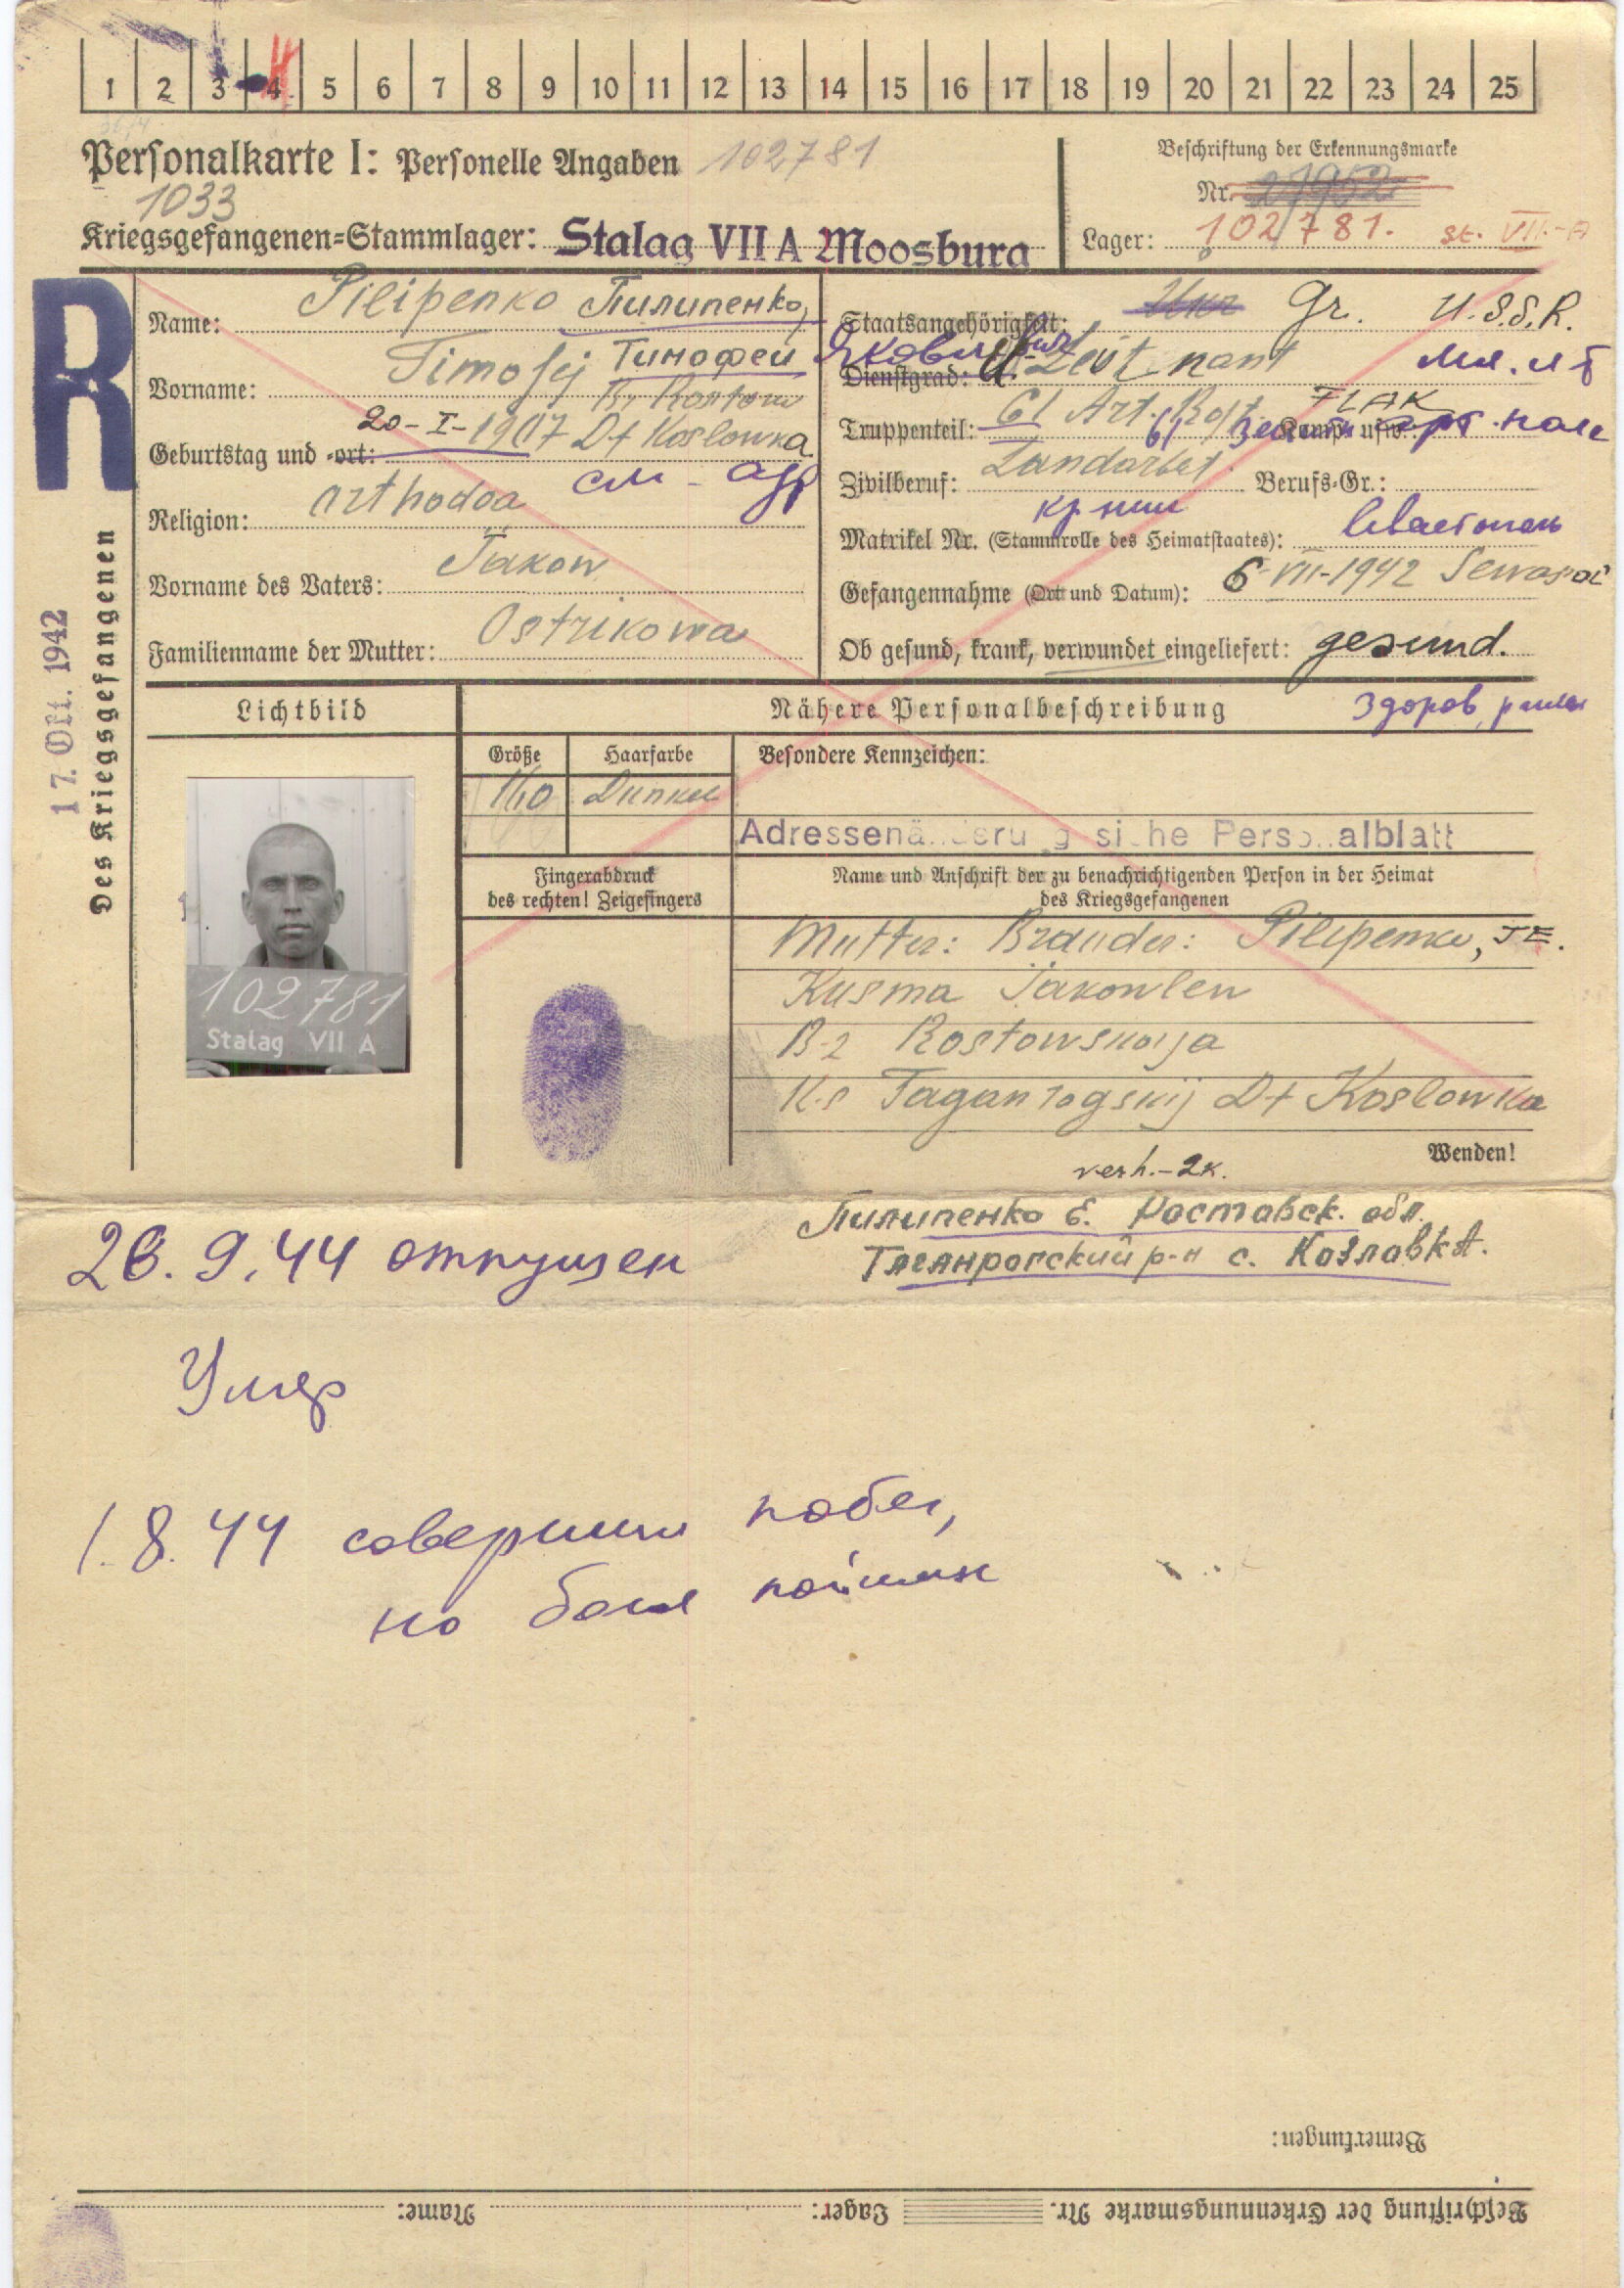 1 2 3 4 5 6 7 8 9 10 11 12 13 14 15 16 17 18 19 20 21 22 23 24 25
Personalkarte I: Personelle Angaben 102781
Beschriftung der Erkennungsmarke
Nr. 27952
1033
Kriegsgefangenen=Stammlager: Stalag VII A Moosburg
Lager: 102781. St. VII-A
R
Des Kriegsgefangenen
17. Okt. 1942
Name: Pilipenko Пилипенко,
Vorname: Timofej Тимофей Яковлевич
Br Rostow
Geburtstag und -ort: 20-I-1907 Df Koslowka
см. адр
Religion: orthodoa
Vorname des Vaters: Jakow
Familienname der Mutter: Ostrikowa
Staatsangehörigkeit: Ukr Gr. U.S.S.R.
Dienstgrad: U. Leutnant мл. л-т
Truppenteil: 61 Art. Rgt. FLAK Komp. usw.:
61 зенитн арт. полк
Zivilberuf: Landarbet. Berufs=Gr.:
Matrikel Nr. (Stammrolle des Heimatstaates):
Севастополь
Gefangennahme (Ort und Datum): 6-VII-1942 Sewasto
Ob gesund, krank, verwundet eingeliefert: gesund.
здоров, ранен
Lichtbild
Nähere Personalbeschreibung
Größe Haarfarbe Besondere Kennzeichen:
Dunkel
Adressenänderung siehe Personalblatt
Fingerabdruck
des rechten! Zeigefingers
Name und Anschrift der zu benachrichtigenden Person in der Heimat
des Kriegsgefangenen
102781
Stalag VII A
Mutter: Brauder: Pilipenko, JE.
Kusma Jakowlew
B-2 Rostowskaja
K-s Taganrogskij Df Koslowka
Wenden!
verh. – 2к.
Пилипенко Е. Ростовск. обл.
Таганрогский р-н с. Козловка.
28. 9. 44 отпущен
Умер
1. 8. 44 совершил побег,
но был пойман
Bemerkungen:
Beschriftung der Erkennungsmarke Nr. Lager: Name: